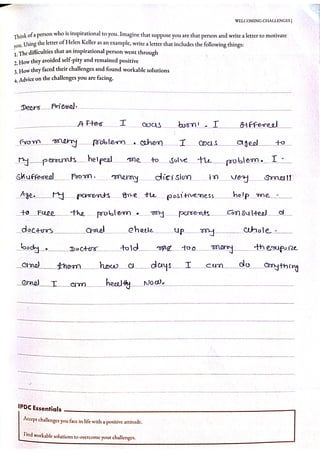 WELCOMING CHALLENGES |
Think of a person who is inspirational to you. Imagine that suppose you are that person and write a letter to motivate
you. Using the letter of Helen Keller as an example, write a letter that includes the following things:
1. The difficulties that an inspirational person went through
2. How they avoided self-pity and remained positive
3. How they faced their challenges and found workable solutions
4. Advice on the challenges you are facing.
Deers Friend.
After I was born. I suffered
from meny problem. when I was aged to
My parents helped me to solve the problem. I.
Shuffered From. meny dicision in very small
Age. My parents give the positiveness help me.
to Face the problem. my parents Consulted a
doctors and check up my whole.
body. Doctor told me too many therapise
and them how a days I can do anything
and I am healthy Now.
IPDC Essentials
Accept challenges you face in life with a positive attitude.
Find workable solutions to overcome your challenges.